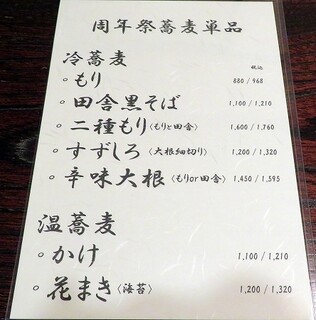 周年祭蕎麦単品
冷蕎麦 税込
。もり 880 / 968
。田舎黒そば 1,100 / 1,210
。二種もり〈もりと田舎〉 1,600 / 1,760
。すずしろ〈大根細切り〉 1,200 / 1,320
。辛味大根〈もりor田舎〉 1,450 / 1,595
温蕎麦
。かけ 1,100 / 1,210
。花まき〈海苔〉 1,200 / 1,320